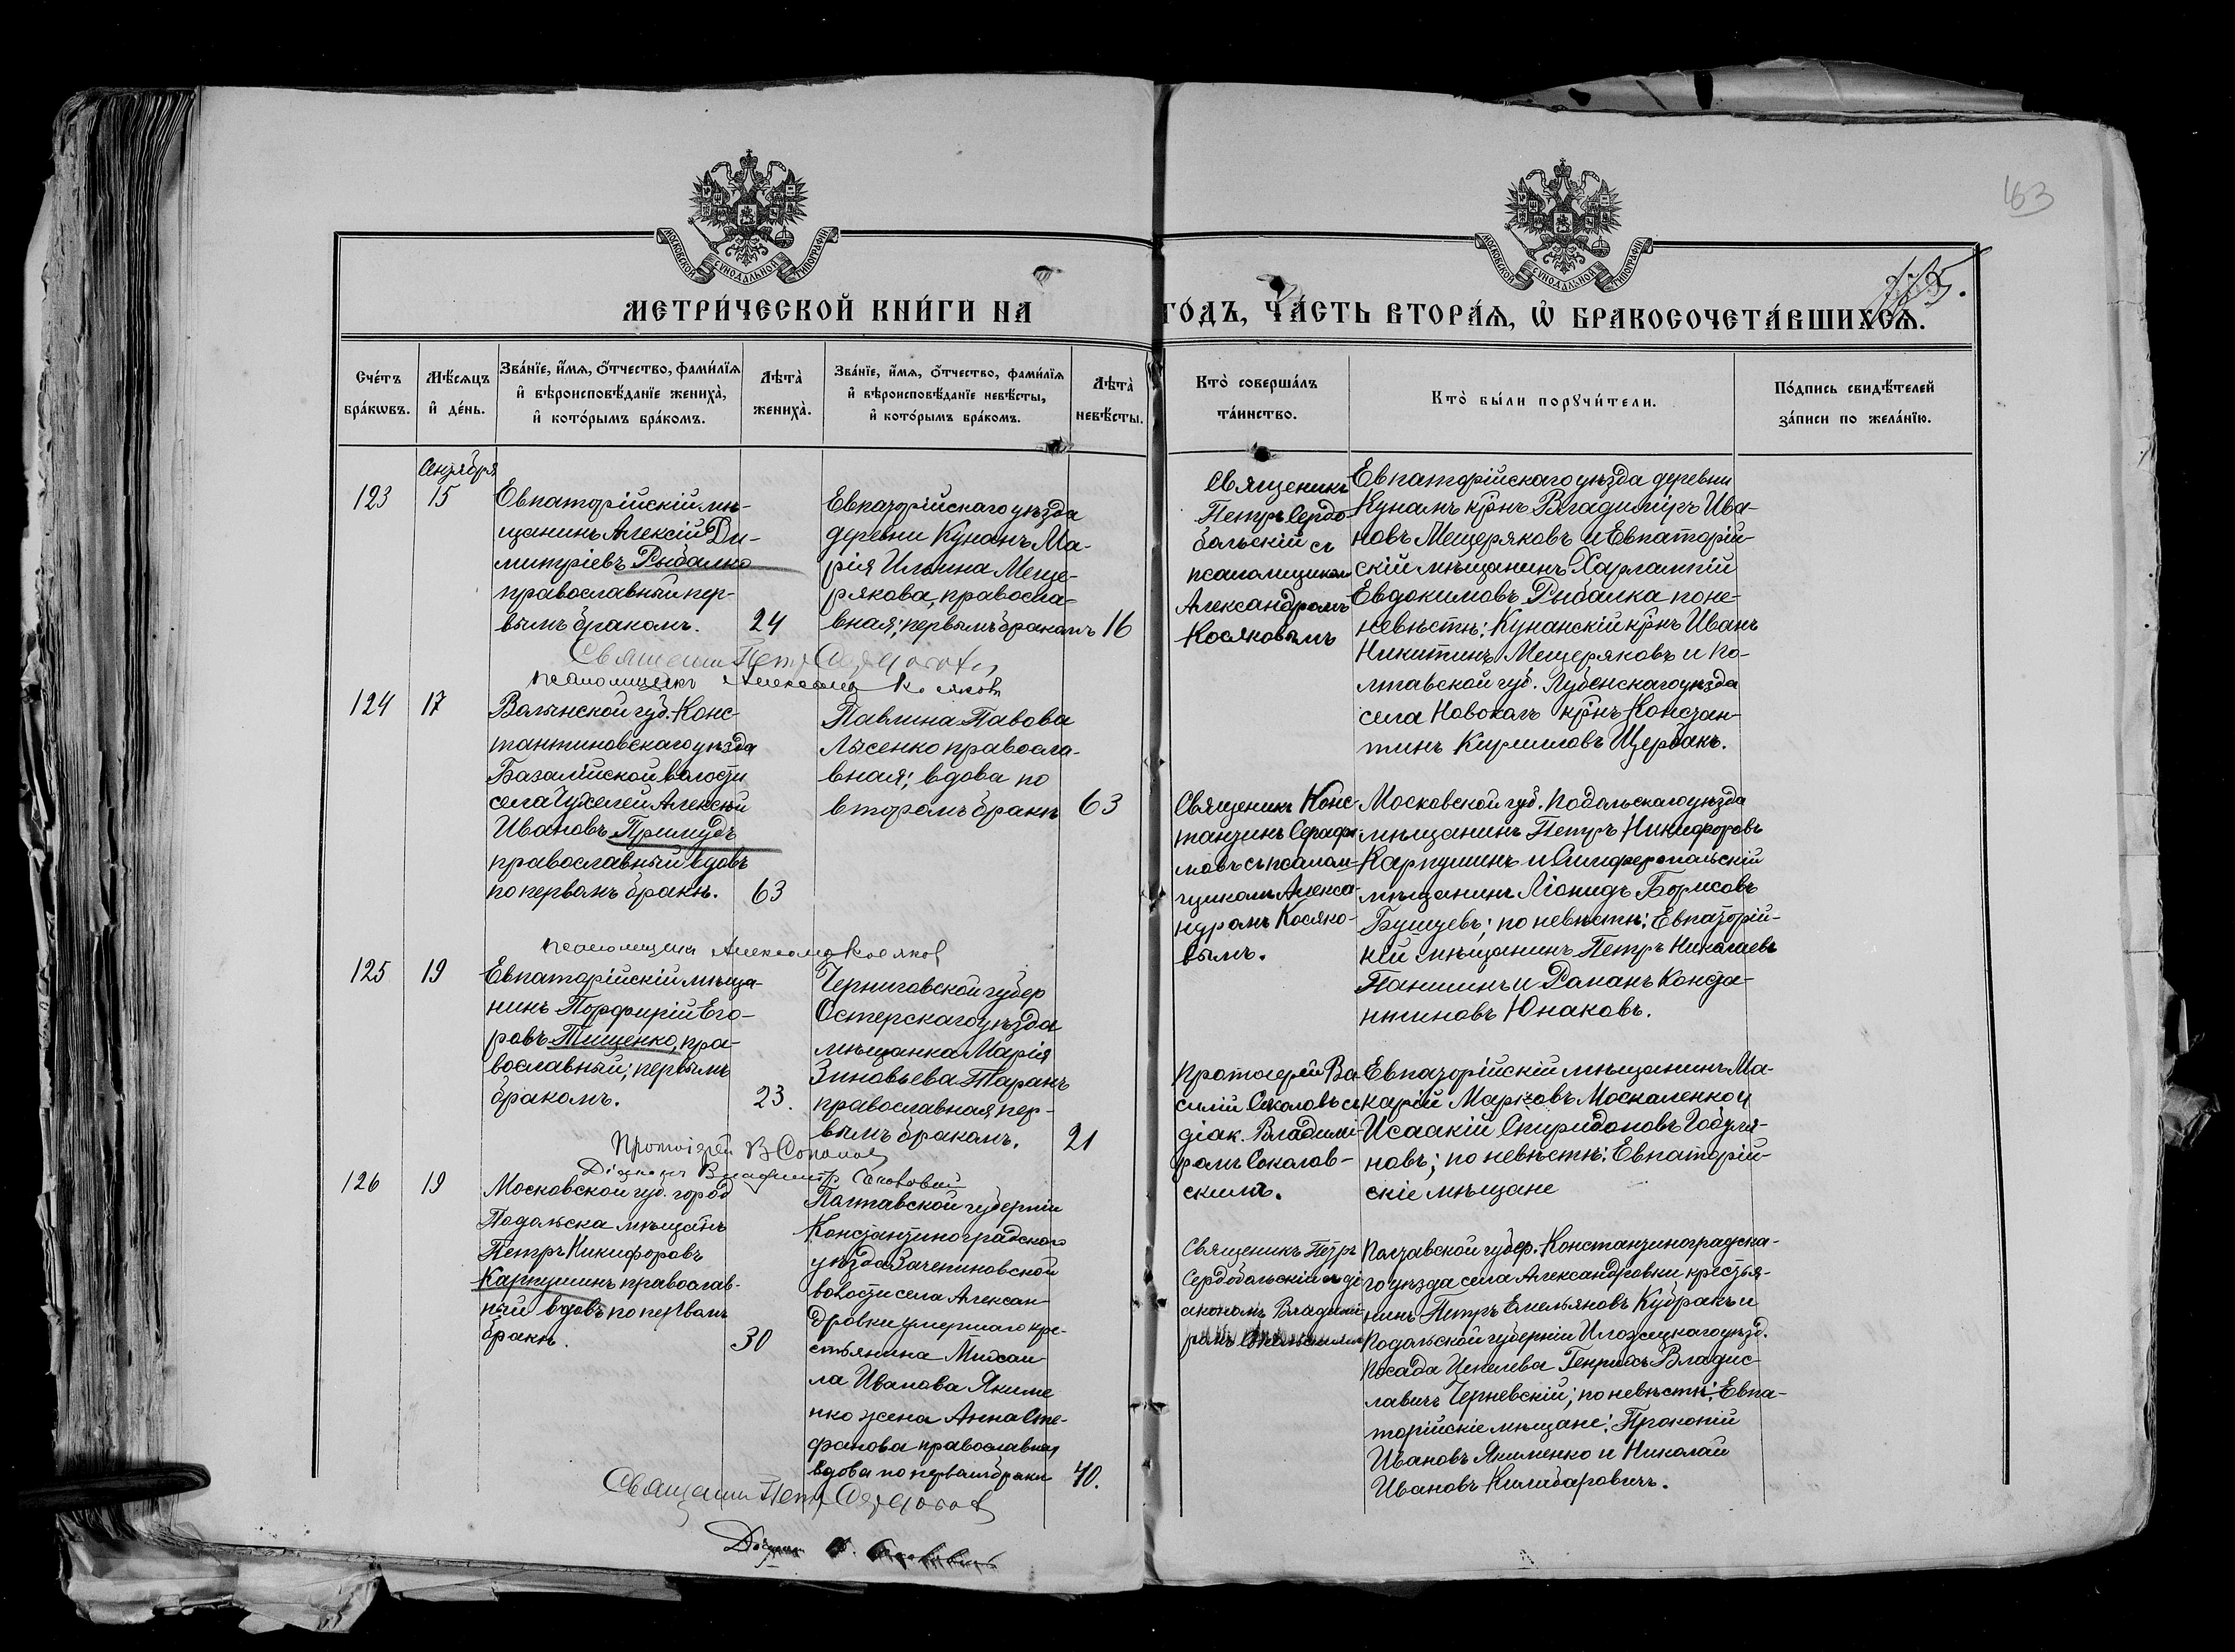 163
775.
МОСКОВСКОЙ СУНОДАЛЬНОЙ ТИПОГРАФІИ
МОСКОВСКОЙ СУНОДАЛЬНОЙ ТИПОГРАФІИ
МЕТРИ́ЧЕСКОЙ КНИ́ГИ НА ГО́ДЪ, ЧА́СТЬ ВТОРА́Я, Ѡ҆ БРАКОСОЧЕТА́ВШИХСЯ.
Счетъ бракѡвъ.
Мѣсяцъ и день.
Званїе, имя, отчество, фамилїя и вѣроисповѣданїе жениха, и которымъ бракомъ.
Лѣта жениха.
Званїе, имя, отчество, фамилїя и вѣроисповѣданїе невѣсты, и которымъ бракомъ.
Лѣта невѣсты.
Кто совершалъ таинство.
Кто были поручители.
Подпись свидѣтелей записи по желанїю.
Сентября
123
15
Евпаторійскій мѣ-
щанинъ Алексій Ди-
митріевъ Рыбалко
православный пер-
вымъ бракомъ.
24
Евпаторійскаго уѣзда
деревни Кунанъ Ма-
рія Ильина Меще-
рякова, правосла-
вная; первымъ бракомъ
16
Священикъ
Петръ Сердо-
больскій съ
псаломщикомъ
Александромъ
Косяковымъ
Евпаторійскаго уѣзда деревни
Кунанъ крнъ Владиміръ Ива-
новъ Мещеряковъ и Евпаторій-
скій мѣщанинъ Харлампій
Евдокимовъ Рыбалка по не-
невѣстѣ: Кунанскій крнъ Иванъ
Никитинъ Мещеряковъ и По-
лтавской губ. Лубенскаго уѣзда
села крнъ Констан-
тинъ Кириловъ Щербакъ.
Священникъ Петръ
псаломщикъ Александръ Косяковъ
124
17
Волынской губ. Конс-
тантиновскаго уѣзда
Базалійской волости
села Алексій
Ивановъ Примудъ
православный вдовъ
по первомъ бракѣ.
63
Павлина Павова
Лысенко правосла-
вная; вдова по
второмъ бракѣ
63
Священикъ Конс-
тантинъ Серафи-
мовъ съ псалом-
щикомъ Алекса-
ндромъ Косяко-
вымъ.
Московской губ. Подольскаго уѣзда
мѣщанинъ Петръ Никифоровъ
Карпушинъ и Симферопольскій
мѣщанинъ Ліонидъ Борисовъ
Бушуевъ; по невѣстѣ: Евпаторій-
кій мѣщанинъ Петръ Николаевъ
Паншинъ и Романъ Конста-
нтиновъ Юнаковъ.
псаломщикъ Александръ Косяковъ
125
19
Евпаторійскій мѣща-
нинъ Порфирій Его-
ровъ Тищенко, пра-
вославный; первымъ
бракомъ.
23.
Черниговской губер
Остерскаго уѣзда
мѣщанка Марія
Зиновьева Таранъ
православная пер-
вымъ бракомъ.
21
Протоіерей Ва-
силій Соколовъ съ
діак. Владимі-
ромъ Соколов-
скимъ.
Евпаторійскій мѣщанинъ Ма-
карій Марковъ Москаленко и
Исаакій Спиридоновъ
новъ; по невѣстѣ: Евпаторій-
скіе мѣщане
Протоіерей В Соколовъ
Діаконъ Владиміръ
126
19
Московской губ. город
Подольска мѣщанъ
Петръ Никифоровъ
Карпушинъ православ-
ный вдовъ по первомъ
бракѣ.
30
Полтавской губерніи
Константиноградскаго
уѣзда Зачепиновской
волости села Алексан-
дровки умершаго кре-
стьянина Михаи-
ла Иванова Якиме
нко жена Анна Сте-
фанова православная
вдова по первомъ бракѣ
40.
Священикъ Петръ
Сердобольскій съ ді-
акономъ Владимі-
ромъ
Полтавской губер. Константиноградска-
го уѣзда села Александровки крестья-
нинъ Петръ Емельяновъ Кубракъ и
Подольской губерніи уѣзд.
посада Генрихъ Владис-
лавичъ Черневскій; по невѣстѣ: Евпа-
торійскіе мѣщане: Прокопій
Ивановъ Якименко и Николай
Ивановъ Килибаровичъ.
Священникъ Петръ